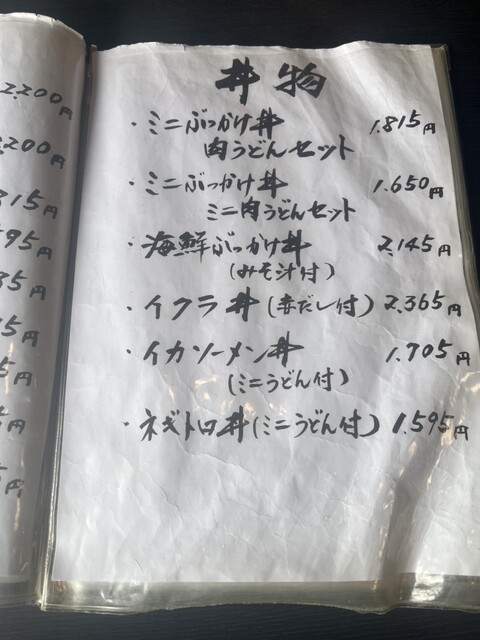 丼物
・ミニぶっかけ丼 1.815円
肉うどんセット
・ミニぶっかけ丼 1.650円
ミニ肉うどんセット
・海鮮ぶっかけ丼 2.145円
(みそ汁付)
・イクラ丼(赤だし付) 2.365円
・イカソーメン丼 1.705円
(ミニうどん付)
・ネギトロ丼(ミニうどん付) 1.595円
2.200円